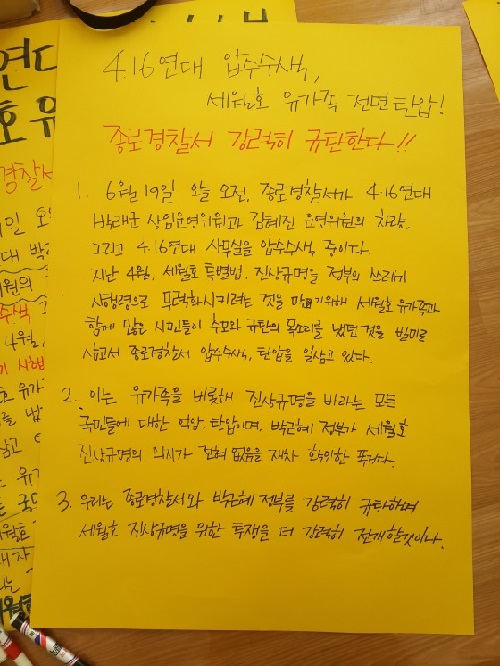 4.16연대 압수수색,
세월호 유가족 전면탄압!
종로경찰서 강력히 규탄한다!!
1. 6월 19일 오늘 오전, 종로경찰서가 4.16연대
박래군 상임운영위원과 김혜진 운영위원의 차량,
그리고 4.16연대 사무실을 압수수색 중이다.
지난 4월, 세월호 특별법, 진상규명을 정부의 쓰레기
시행령으로 무력화시키려는 것을 막기위해 세월호 유가족과
함께 많은 시민들이 추모와 규탄의 목소리를 냈던 것을 빌미로
삼고서 종로경찰서 압수수색, 탄압을 일삼고 있다.
2. 이는 유가족을 비롯해 진상규명을 바라는 모든
국민들에 대한 억압, 탄압이며, 박근혜 정부가 세월호
진상규명의 의지가 전혀 없음을 재차 확인한 폭거다.
3. 우리는 종로경찰서와 박근혜 정부를 강력히 규탄하며
세월호 진상규명을 위한 투쟁을 더 강력히 전개할것이다.